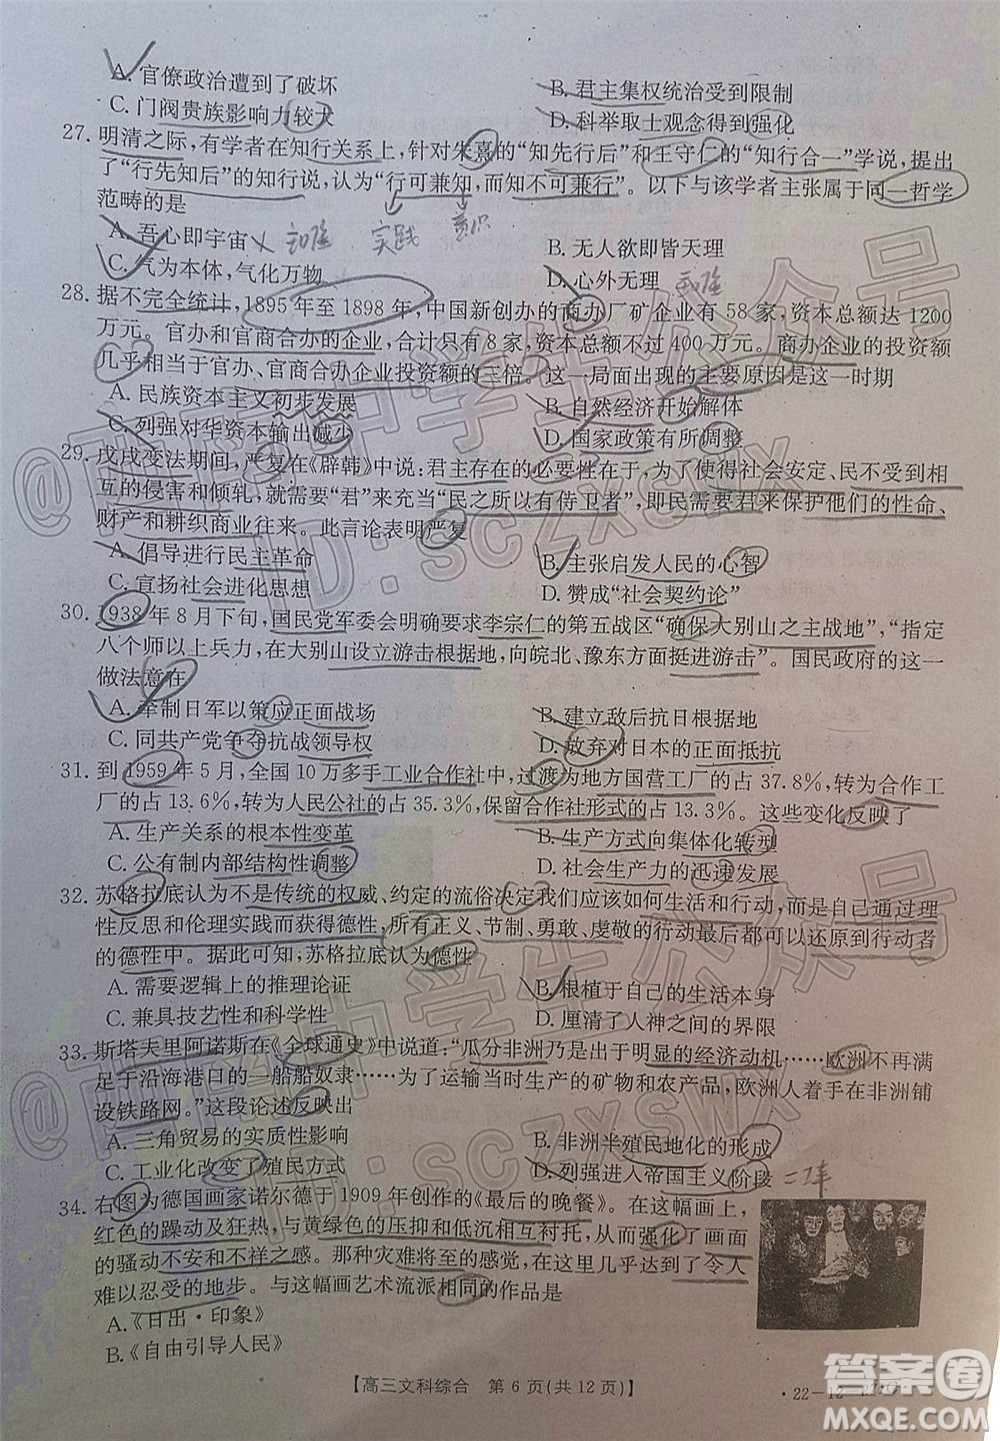 A. 官僚政治遭到了破坏 B. 君主集权统治受到限制
C. 门阀贵族影响力较大 D. 科举取士观念得到强化
27. 明清之际,有学者在知行关系上,针对朱熹的“知先行后”和王守仁的“知行合一”学说,提出
了“行先知后”的知行说,认为“行可兼知,而知不可兼行”。以下与该学者主张属于同一哲学
范畴的是
A. 吾心即宇宙 实践 意识 B. 无人欲即皆天理
C. 气为本体,气化万物 D. 心外无理
28. 据不完全统计,1895 年至 1898 年,中国新创办的商办厂矿企业有 58 家,资本总额达 1200
万元。官办和官商合办的企业,合计只有 8 家,资本总额不过 400 万元。商办企业的投资额
几乎相当于官办、官商合办企业投资额的三倍。这一局面出现的主要原因是这一时期
A. 民族资本主义初步发展 B. 自然经济开始解体
C. 列强对华资本输出减少 D. 国家政策有所调整
29. 戊戌变法期间,严复在《辟韩》中说:君主存在的必要性在于,为了使得社会安定、民不受到相
互的侵害和倾轧,就需要“君”来充当“民之所以有待卫者”,即民需要君来保护他们的性命、
财产和耕织商业往来。此言论表明严复
A. 倡导进行民主革命 B. 主张启发人民的心智
C. 宣扬社会进化思想 D. 赞成“社会契约论”
30. 1938 年 8 月下旬,国民党军委会明确要求李宗仁的第五战区“确保大别山之主战地”,“指定
八个师以上兵力,在大别山设立游击根据地,向皖北、豫东方面挺进游击”。国民政府的这一
做法意在
A. 牵制日军以策应正面战场 B. 建立敌后抗日根据地
C. 同共产党争夺抗战领导权 D. 放弃对日本的正面抵抗
31. 到 1959 年 5 月,全国 10 万多手工业合作社中,过渡为地方国营工厂的占 37.8%,转为合作工
厂的占 13.6%,转为人民公社的占 35.3%,保留合作社形式的占 13.3%。这些变化反映了
A. 生产关系的根本性变革 B. 生产方式向集体化转型
C. 公有制内部结构性调整 D. 社会生产力的迅速发展
32. 苏格拉底认为不是传统的权威、约定的流俗决定我们应该如何生活和行动,而是自己通过理
性反思和伦理实践而获得的德性,所有正义、节制、勇敢、虔敬的行动最后都可以还原到行动者
的德性中。据此可知,苏格拉底认为德性
A. 需要逻辑上的推理论证 B. 根植于自己的生活本身
C. 兼具技艺性和科学性 D. 厘清了人神之间的界限
33. 斯塔夫里阿诺斯在《全球通史》中说道:“瓜分非洲乃是出于明显的经济动机……欧洲不再满
足于沿海港口的一船船奴隶……为了运输当时生产的矿物和农产品,欧洲人着手在非洲铺
设铁路网。”这段论述反映出
A. 三角贸易的实质性影响 B. 非洲半殖民地化的形成
C. 工业化改变了殖民方式 D. 列强进入帝国主义阶段 二工革
34. 右图为德国画家诺尔德于 1909 年创作的《最后的晚餐》。在这幅画上,
红色的躁动及狂热,与黄绿色的压抑和低沉相互衬托,从而强化了画面
的骚动不安和不祥之感。那种灾难将至的感觉,在这里几乎达到了令人
难以忍受的地步。与这幅画艺术流派相同的作品是
A.《日出·印象》
B.《自由引导人民》
【高三文科综合 第 6 页(共 12 页)】
·22-12
@西南中学生公众号
ID:SCZXSWX
@西南中学生公众号
ID:SCZXSWX
答案圈
MXQE.COM